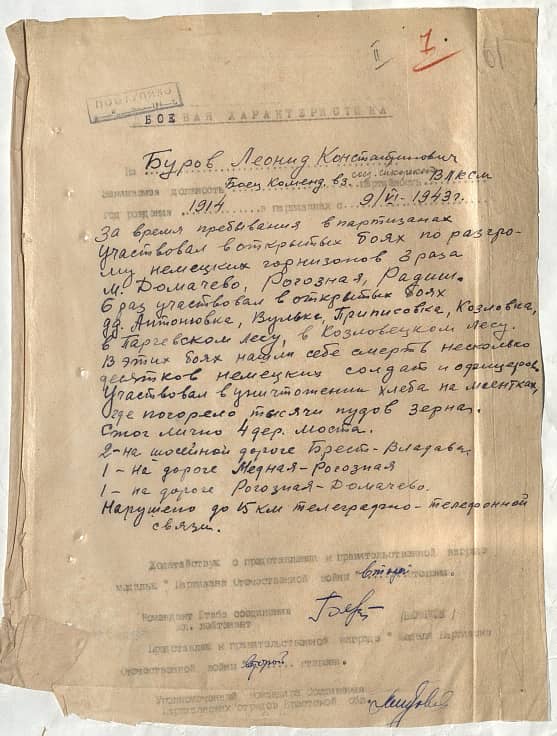 II 7. 61
ПОСТУПИЛО
БОЕВАЯ ХАРАКТЕРИСТИКА
На Буров Леонид Константинович
Занимаемая должность Боец Коменд. вз. партийность ВЛКСМ
год рождения 1914 в партизанах с 9/VI-1943 г.
За время пребывания в партизанах
участвовал в открытых боях по разгро-
му немецких горнизонов 3 раза
м. Домачево, Рогозная, Радиш.
6 раз участвовал в открытых боях
дд. Антонювка, Вулька, Приписовка, Козловка,
в Парчевском лесу, в Козловецком лесу.
В этих боях нашли себе смерть несколько
десятков немецких солдат и офицеров
Участвовал в уничтожении хлеба на маентках,
где погорело тысячи пудов зерна.
Сжог лично 4 дер. моста.
2-на шосейной дороге Брест-Владава.
1 - на дороге Медная-Рогозная
1 - на дороге Рогозная-Домачево.
Нарушено до 15 км телеграфно-телефонной
связи.
Ходатайствую о представлении к правительственной награде
медалью "Партизана Отечественной войны второй степени.
Комендант Штаба соединения
мл. лейтенант
Представлен к правительственной награде "Медаля Партизана
Отечественной войны второй степени.
Уполномоченный Командира Соединения
Партизанских отрядов Брестской обл.